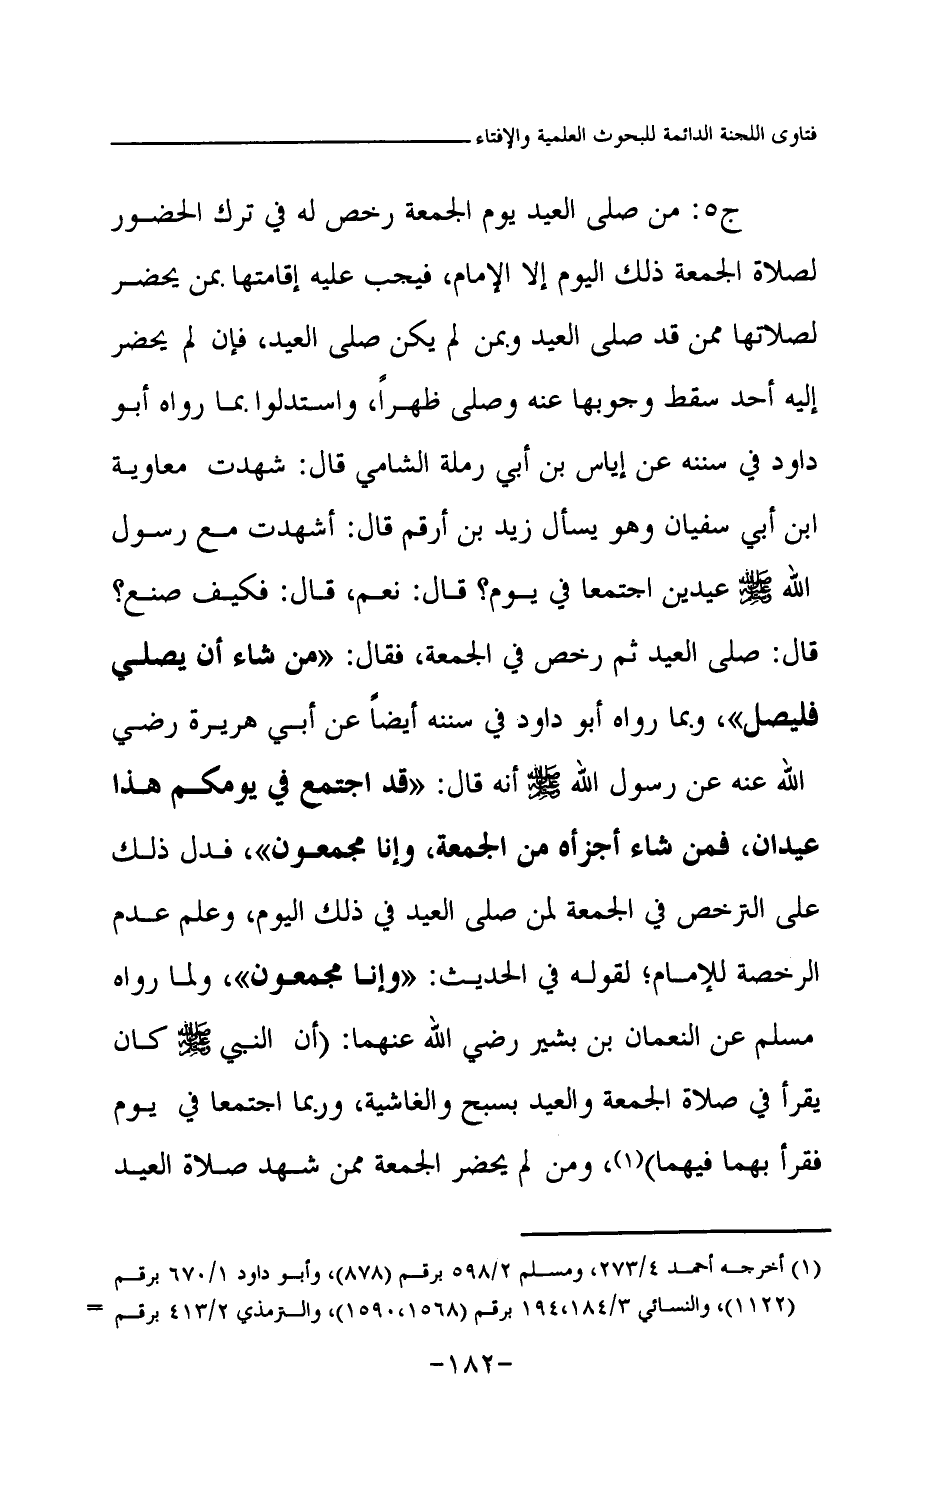 فتاوى اللجنة الدائمة للبحوث العلمية والإفتاء
ج٥: من صلى العيد يوم الجمعة رخص له في ترك الحضـور
لصلاة الجمعة ذلك اليوم إلا الإمام، فيجب عليه إقامتها بمن يحضـر
لصلاتها ممن قد صلى العيد وبمن لم يكن صلى العيد، فإن لم يحضر
إليه أحد سقط وجوبها عنه وصلى ظهـراً، واسـتدلوا بمـا رواه أبـو
داود في سننه عن إياس بن أبي رملة الشامي قال: شهدت معاويـة
ابن أبي سفيان وهو يسأل زيد بن أرقم قال: أشهدت مـع رسـول
الله ﷺ عيدين اجتمعا في يـوم؟ قـال: نعـم، قـال: فكيـف صنـع؟
قال: صلى العيد ثم رخص في الجمعة، فقال: «من شاء أن يصلـي
فليصل»، وبما رواه أبو داود في سننه أيضاً عن أبـي هريـرة رضـي
الله عنه عن رسول الله ﷺ أنه قال: «قد اجتمع في يومكـم هـذا
عيدان، فمن شاء أجزأه من الجمعة، وإنا مجمعـون»، فـدل ذلـك
على الترخص في الجمعة لمن صلى العيد في ذلك اليوم، وعلم عـدم
الرخصة للإمـام؛ لقولـه في الحديـث: «وإنـا مجمعون»، ولمـا رواه
مسلم عن النعمان بن بشير رضي الله عنهما: (أن النبي ﷺ كـان
يقرأ في صلاة الجمعة والعيد بسبح والغاشية، وربما اجتمعا في يـوم
فقرأ بهما فيهما)(١)، ومن لم يحضر الجمعة ممن شـهد صـلاة العيـد
(١) أخرجـه أحمـد ٢٧٣/٤، ومسـلم ٥٩٨/٢ برقـم (٨٧٨)، وأبـو داود ٦٧٠/١ برقـم
(١١٢٢)، والنسائي ١٩٤،١٨٤/٣ برقم (١٥٩٠،١٥٦٨)، والـترمذي ٤١٣/٢ برقـم =
-١٨٢-